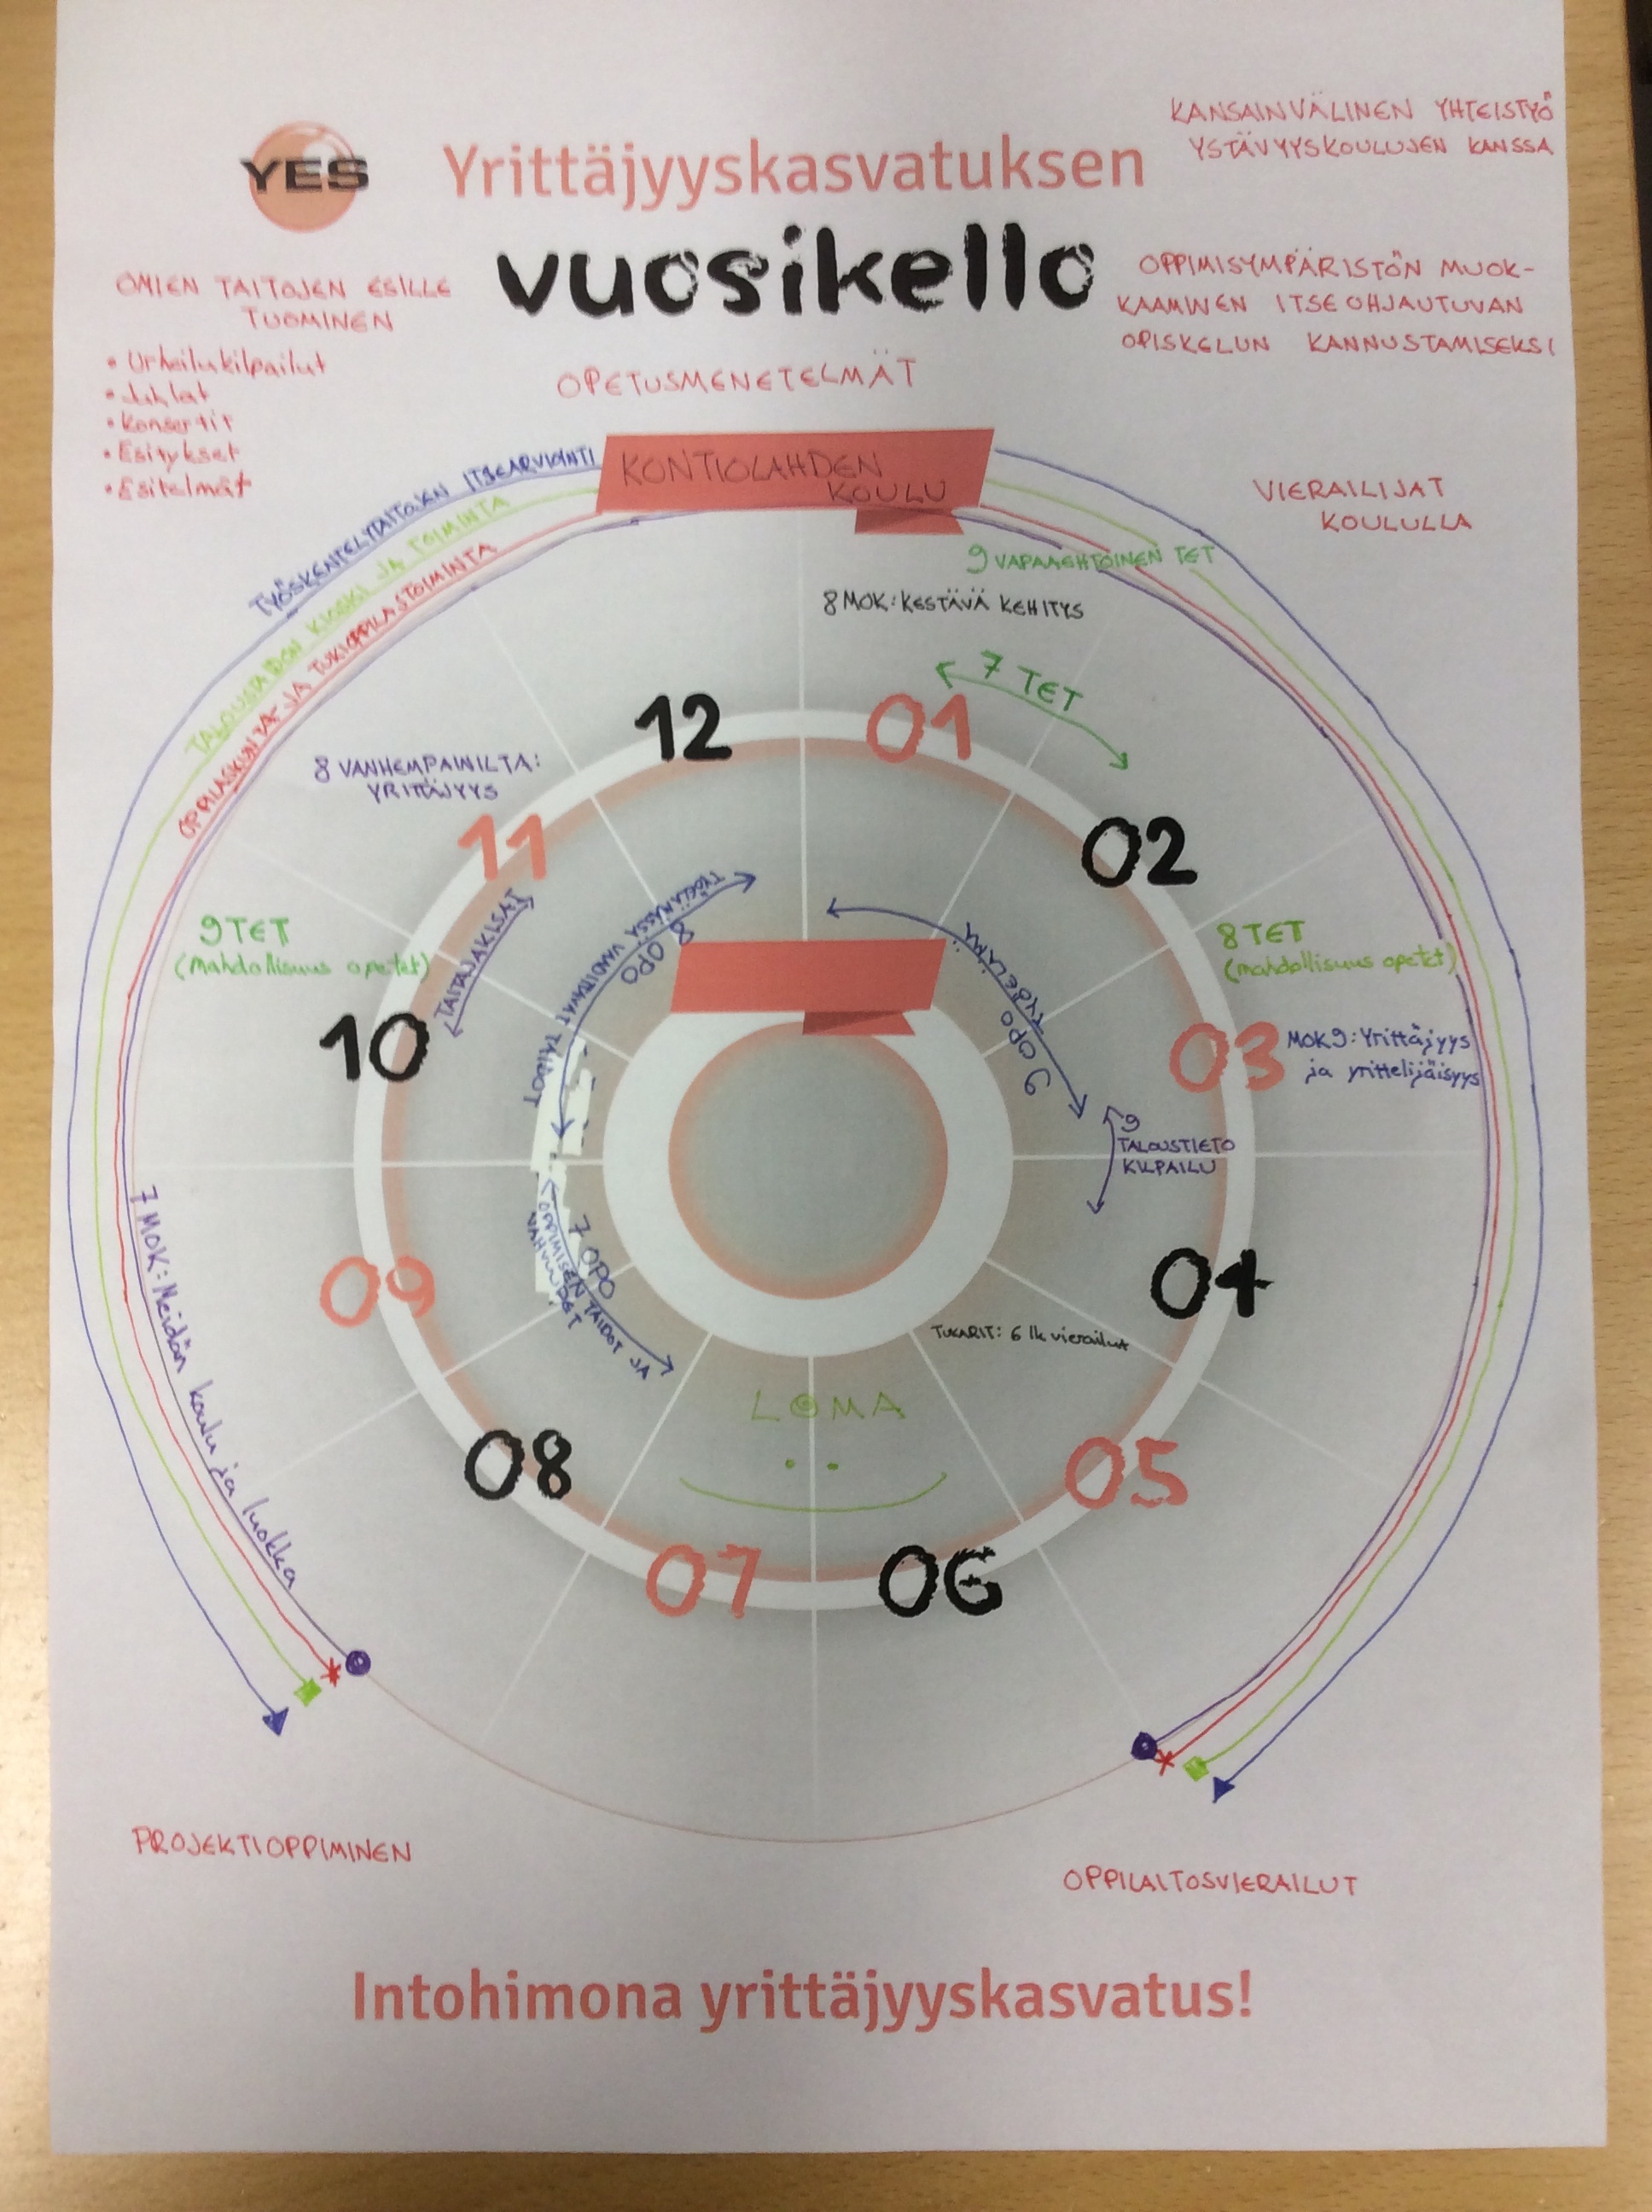 YES
Yrittäjyyskasvatuksen
vuosikello
KANSAINVÄLINEN YHTEISTYÖ
YSTÄVYYSKOULUJEN KANSSA
OMIEN TAITOJEN ESILLE
TUOMINEN
• Urheilukilpailut
• Juhlat
• Konsertit
• Esitykset
• Esitelmät
OPPIMISYMPÄRISTÖN MUOK-
KAAMINEN ITSEOHJAUTUVAN
OPISKELUN KANNUSTAMISEKSI
OPETUSMENETELMÄT
KONTIOLAHDEN
KOULU
VIERAILIJAT
KOULULLA
TYÖSKENTELYTAITOJEN ITSEARVIOINTI
TALOUSTAIDON KIOSKI JA TOIMINTA
OPPILASKUNTA- JA TUKIOPPILASTOIMINTA
9 VAPAAEHTOINEN TET
8 MOK: KESTÄVÄ KEHITYS
7 TET
12
01
8 VANHEMPAINILTA:
YRITTÄJYYS
11
02
9 TET
(mahdollisuus opetet)
TAITAJAKISAT
8 OPO
TYÖELÄMÄSSÄ VAADITTAVAT TAIDOT
9 OPO
TYÖELÄMÄ
8 TET
(mahdollisuus opetet)
10
03
MOK9: Yrittäjyys
ja yrittelijäisyys
9
TALOUSTIETO
KILPAILU
7 MOK: Meidän koulu ja luokka
7 OPO
OPPIMISEN TAIDOT JA
VAHVUUDET
09
04
TUKARIT: 6 lk vierailut
LOMA
08
05
07
06
PROJEKTIOPPIMINEN
OPPILAITOSVIERAILUT
Intohimona yrittäjyyskasvatus!